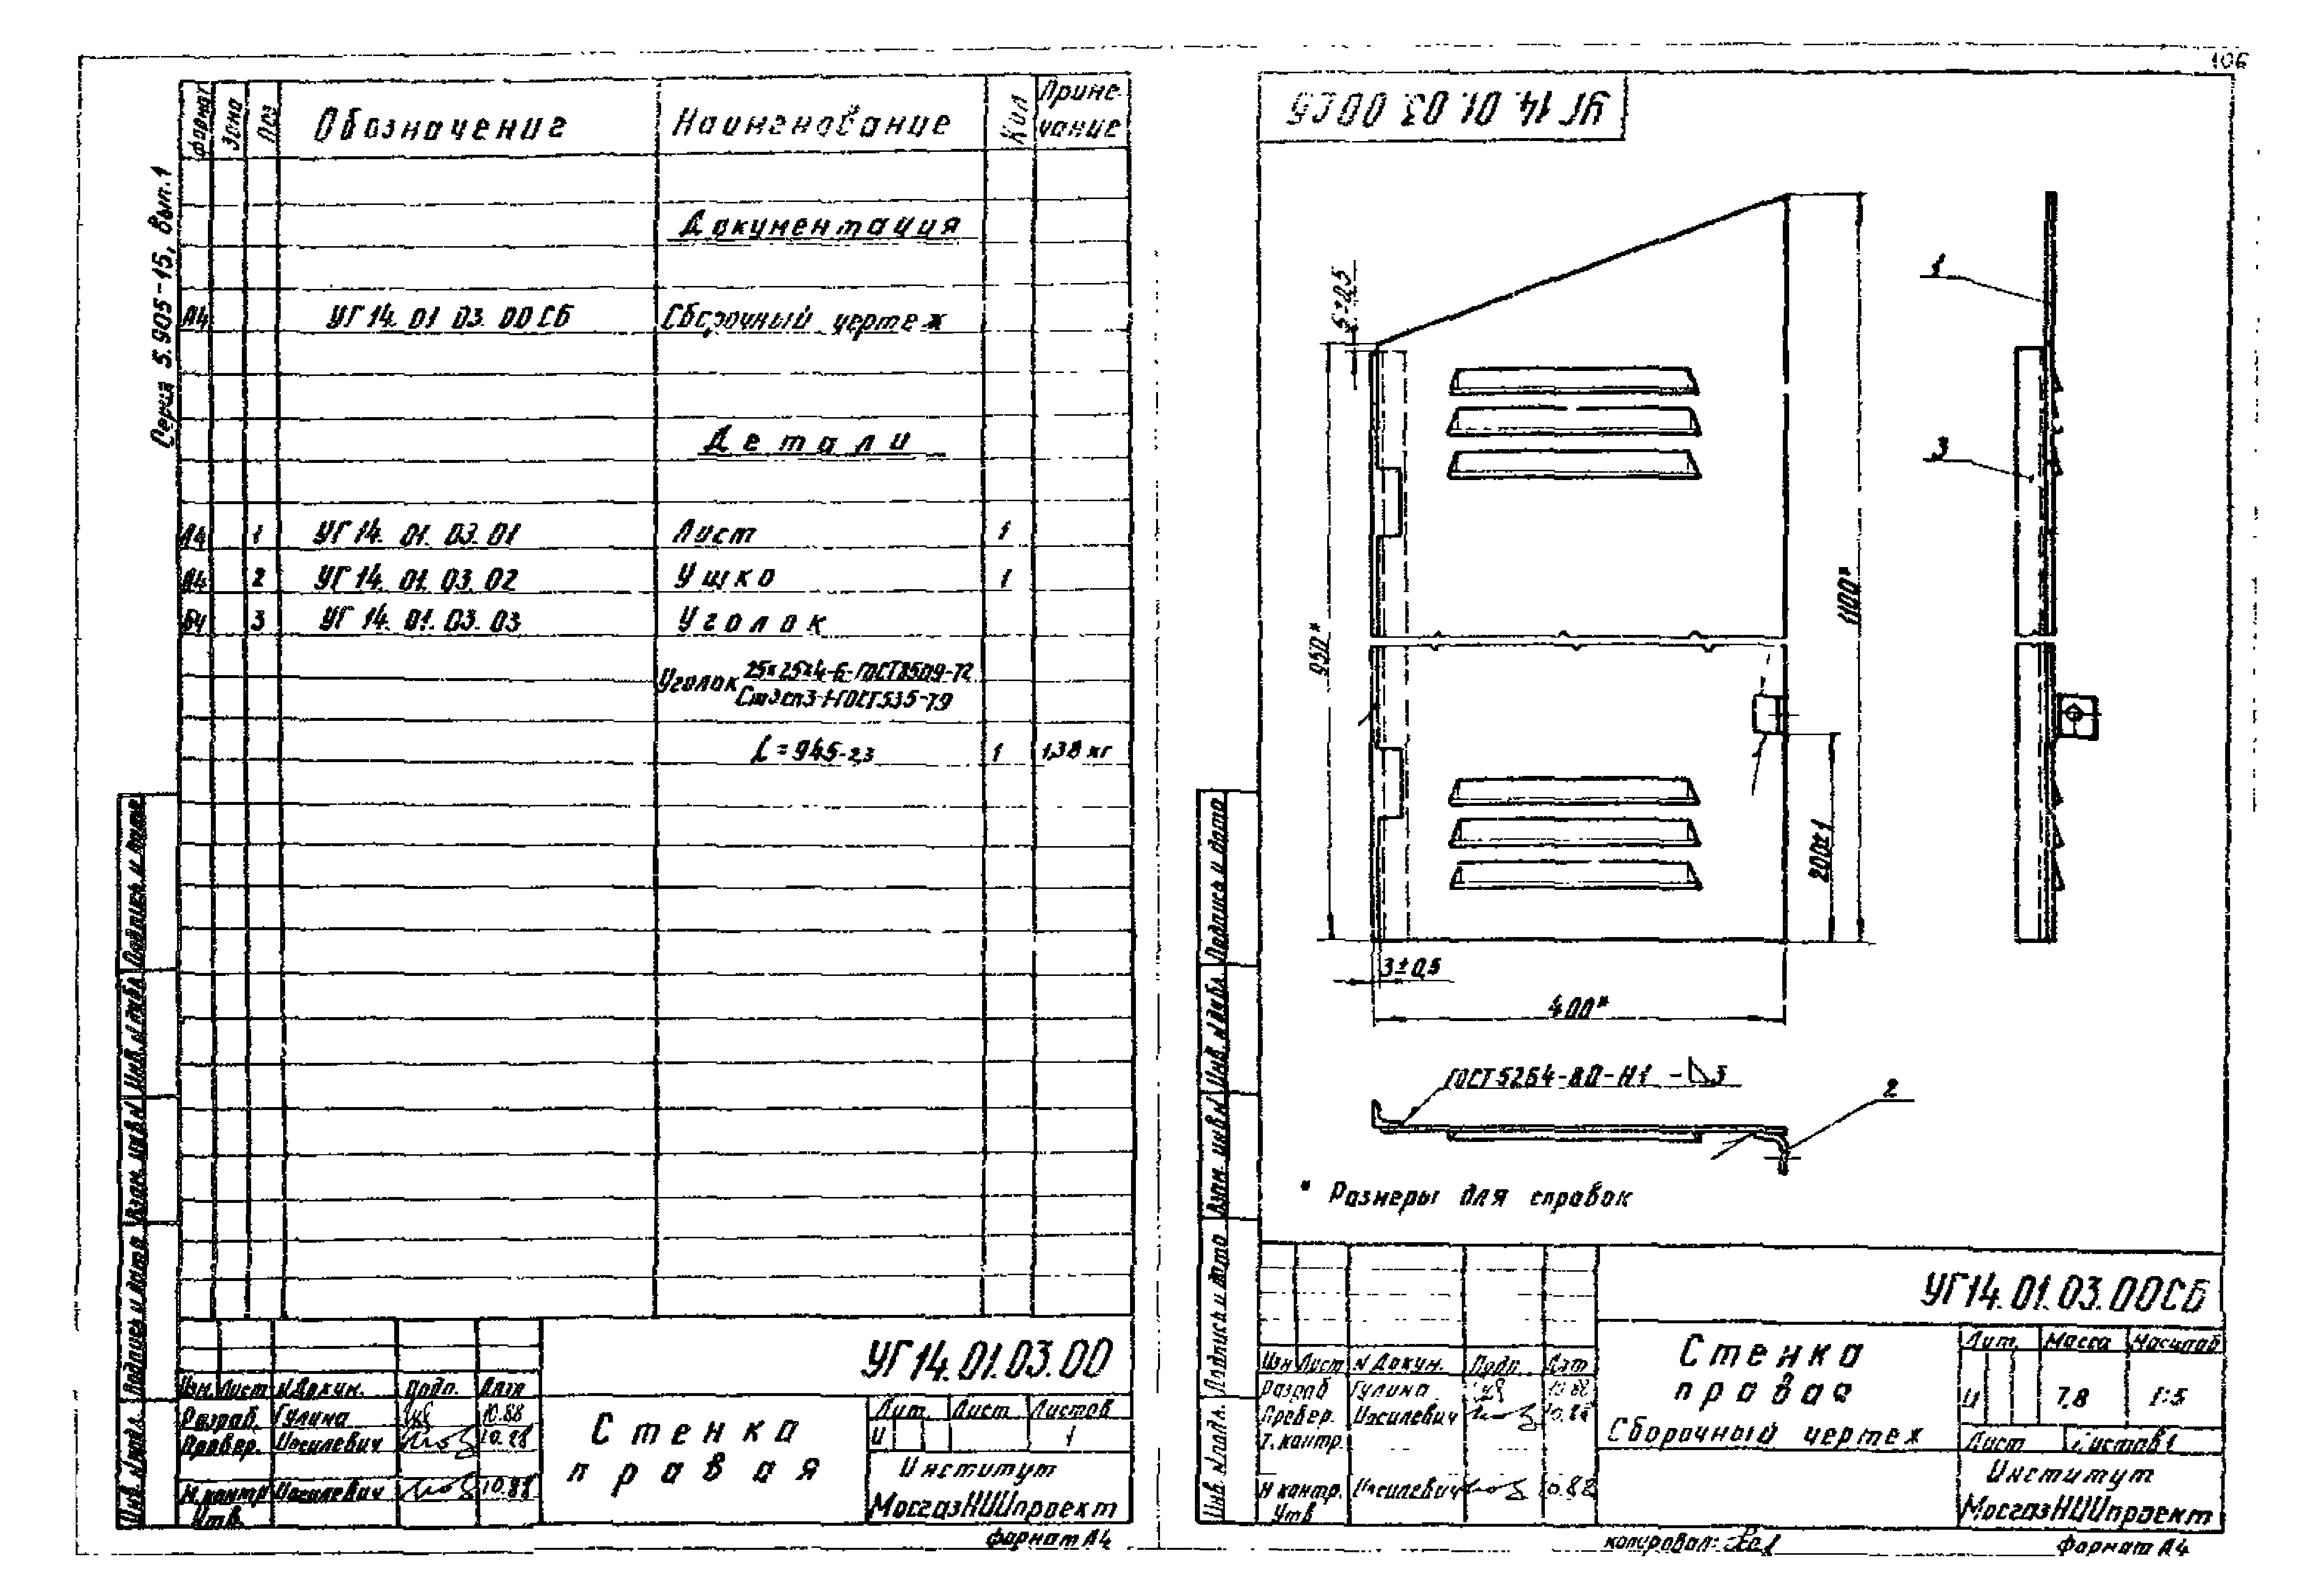 106
Серия 5.905-15, Вып.1
Формат Зона Поз Обозначение Наименование Кол Приме-
чание
Документация
А4 УГ 14. 01 03. 00 СБ Сборочный чертеж
Детали
А4 1 УГ 14. 01. 03. 01 Лист 1
А4 2 УГ 14. 01. 03. 02 Ушко 1
БЧ 3 УГ 14. 01. 03. 03 Уголок
Уголок 25×25×4-Б-ГОСТ8509-72
Ст3сп3-1-ГОСТ535-79
L = 945-2,3 1 1,38 кг
Подпись и дата
Инв. N дубл
Взам. инв N
Подпись и дата
Инв. N подл.
УГ14.01.03.00
Изм. Лист N Докум. Подп. Дата
Разраб. Гулина 10.88
Провер. Иосилевич 10.88
Н.контр Иосилевич 10.88
Утв.
Стенка
правая
Лит. Лист Листов
И 1
Институт
МосгазНИИпроект
формат А4
УГ 14. 01. 03. 00СБ
5±0,5
950*
1100*
200±1
3±0,5
400*
1
3
ГОСТ 5264-80-Н1-3
2
* Размеры для справок
Подпись и дата
Инв. N дубл
Взам. инв N
Подпись и дата
Инв. N подл.
УГ14.01.03.00СБ
Изм Лист N Докум. Подп. Дат
Разраб Гулина 10.88
Провер. Иосилевич 10.88
Т.контр.
Н контр. Иосилевич 10.88
Утв
Стенка
правая
Сборочный чертеж
Лит. Масса Масштаб
И 7,8 1:5
Лист Листов 1
Институт
МосгазНИИпроект
копировал:
формат А4